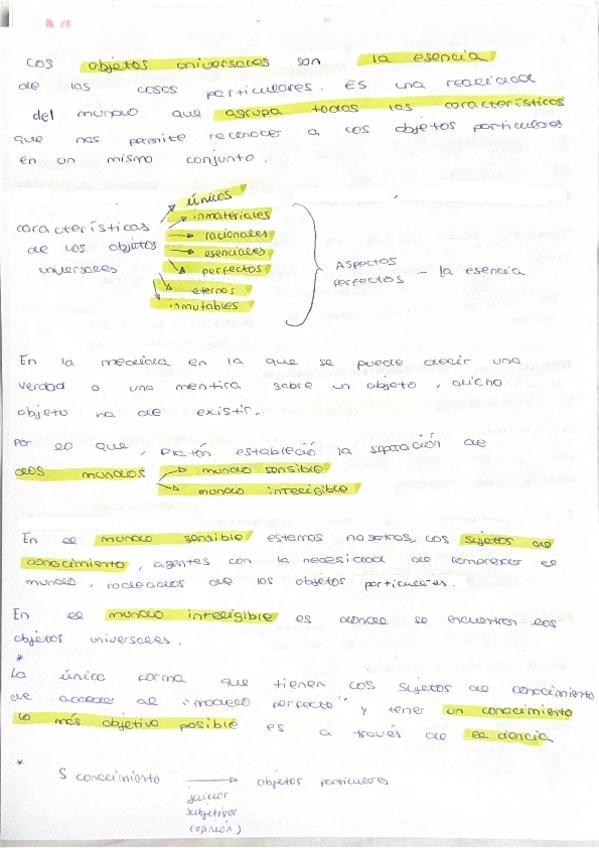 Los objetos universales son la esencia
de las cosas particulares. Es una realidad
del mundo que agrupa todas las características
que nos permite reconocer a los objetos particulares
en un mismo conjunto.
características de los objetos universales
únicos
inmateriales
racionales
esenciales
perfectos
eternos
inmutables
Aspectos perfectos - la esencia
En la medida en la que se puede decir una
verdad o una mentira sobre un objeto, dicho
objeto ha de existir.
Por lo que, Platón estableció la separación de
dos mundos
mundo sensible
mundo inteligible
En el mundo sensible estamos nosotros, los sujetos de
conocimiento, agentes con la necesidad de comprender el
mundo, rodeados de los objetos particulares.
En el mundo inteligible es donde se encuentran los
objetos universales.
*
La única forma que tienen los sujetos de conocimiento
de acceder al "modelo perfecto" y tener un conocimiento
lo más objetivo posible es a través de la ciencia
*
S conocimiento → objetos particulares
juicios
subjetivos
(opinión)